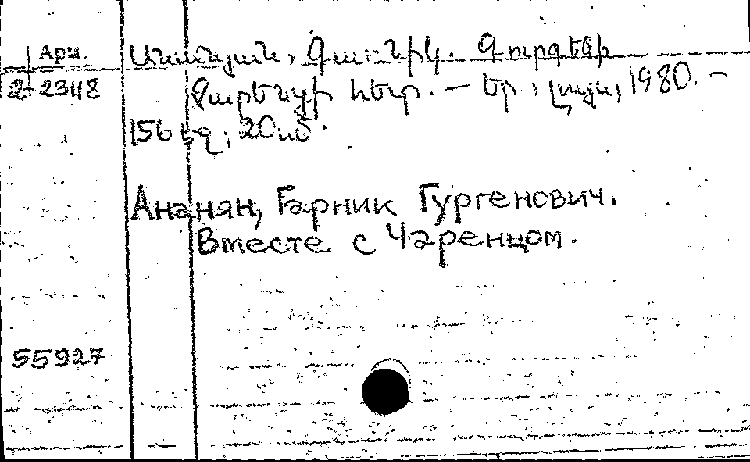 Арм. Անանյան, Գառնիկ Գուրգենի
2-23118 Չարենցի հետ. — Եր., Լույս, 1980. —
156 էջ, 20սմ.
Ананян, Гарник Гургенович.
Вместе с Чаренцом.
55927